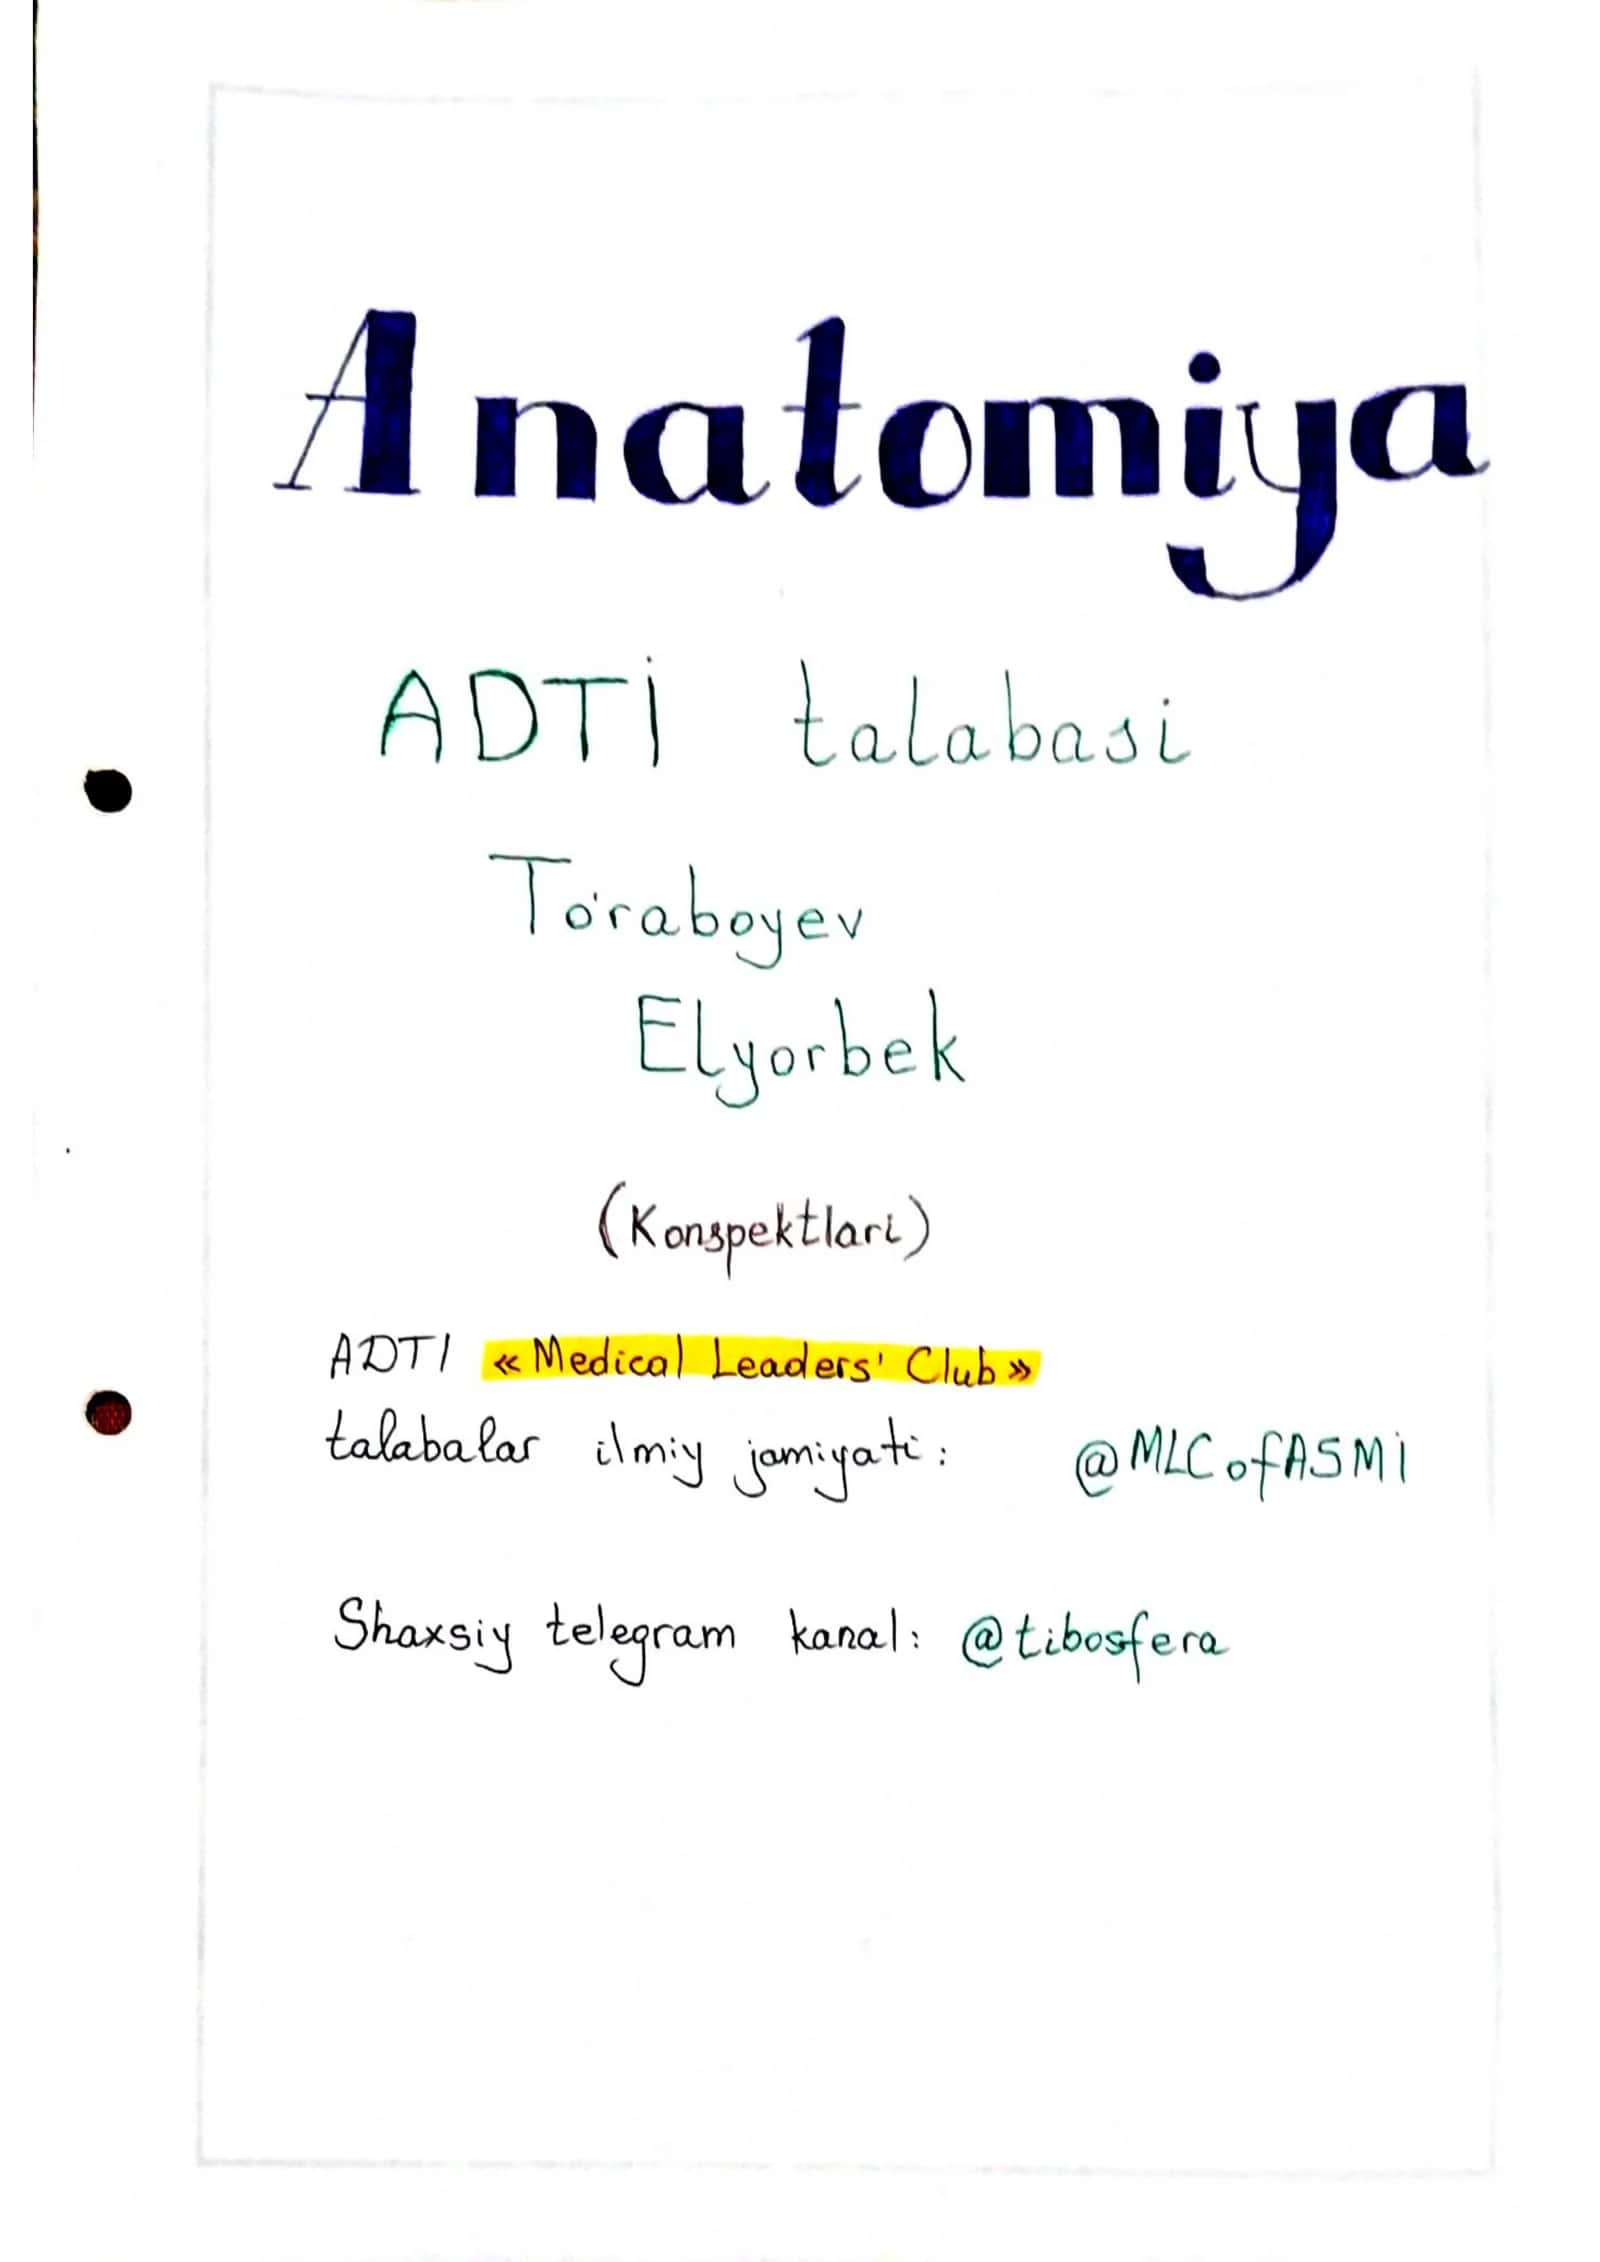 Anatomiya
ADTİ talabasi
To'raboyev
Elyorbek
(Konspektlari)
ADTI «Medical Leaders' Club»
talabalar ilmiy jamiyati: @MLCofASMI
Shaxsiy telegram kanal: @tibosfera